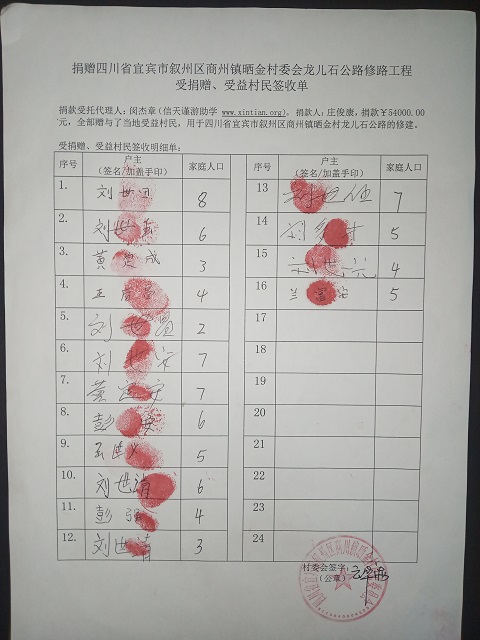 捐赠四川省宜宾市叙州区商州镇晒金村委会龙儿石公路修路工程
受捐赠、受益村民签收单
捐款受托代理人：闵杰章(信天谨游助学 www.xintian.org)，捐款人：庄俊康，捐款￥54000.00
元，全部赠与了当地受益村民，用于四川省宜宾市叙州区商州镇晒金村龙儿石公路的修建。
受捐赠、受益村民签收明细单：
序号 户主（签名/加盖手印） 家庭人口
1. 刘世 8
2. 刘世 6
3. 黄定成 3
4. 王 4
5. 刘世 2
6. 刘世安 7
7. 黄定安 7
8. 彭 6
9. 5
10. 刘世清 6
11. 彭强 4
12. 刘世清 3
序号 户主（签名/加盖手印） 家庭人口
13 刘 7
14 刘 5
15 4
16 兰 5
17
18
19
20
21
22
23
24
村委会签字：
（公章）